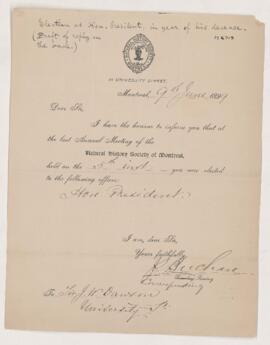 Election as Hon. President, in year of his decease.
(Draft of reply on
the back.)
32 UNIVERSITY STREET.
Montreal, 9th June 1899
Dear Sir,
I have the honour to inform you that at
the last Annual Meeting of the
Natural History Society of Montreal,
held on the 5th inst you were elected
to the following office:
Hon. President.
I am, dear Sir,
Yours faithfully,
Recording Secretary
Corresponding
To Sir J. W. Dawson
University St.